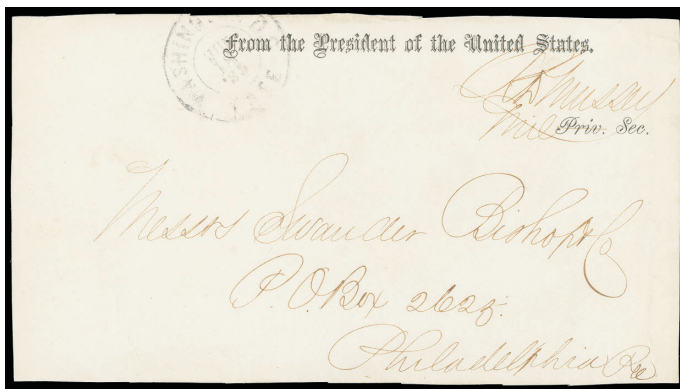 From the President of the United States.
Mil Priv. Sec.
Messrs Swander Bishop & Co
P.O. Box 2625.
Philadelphia Pa